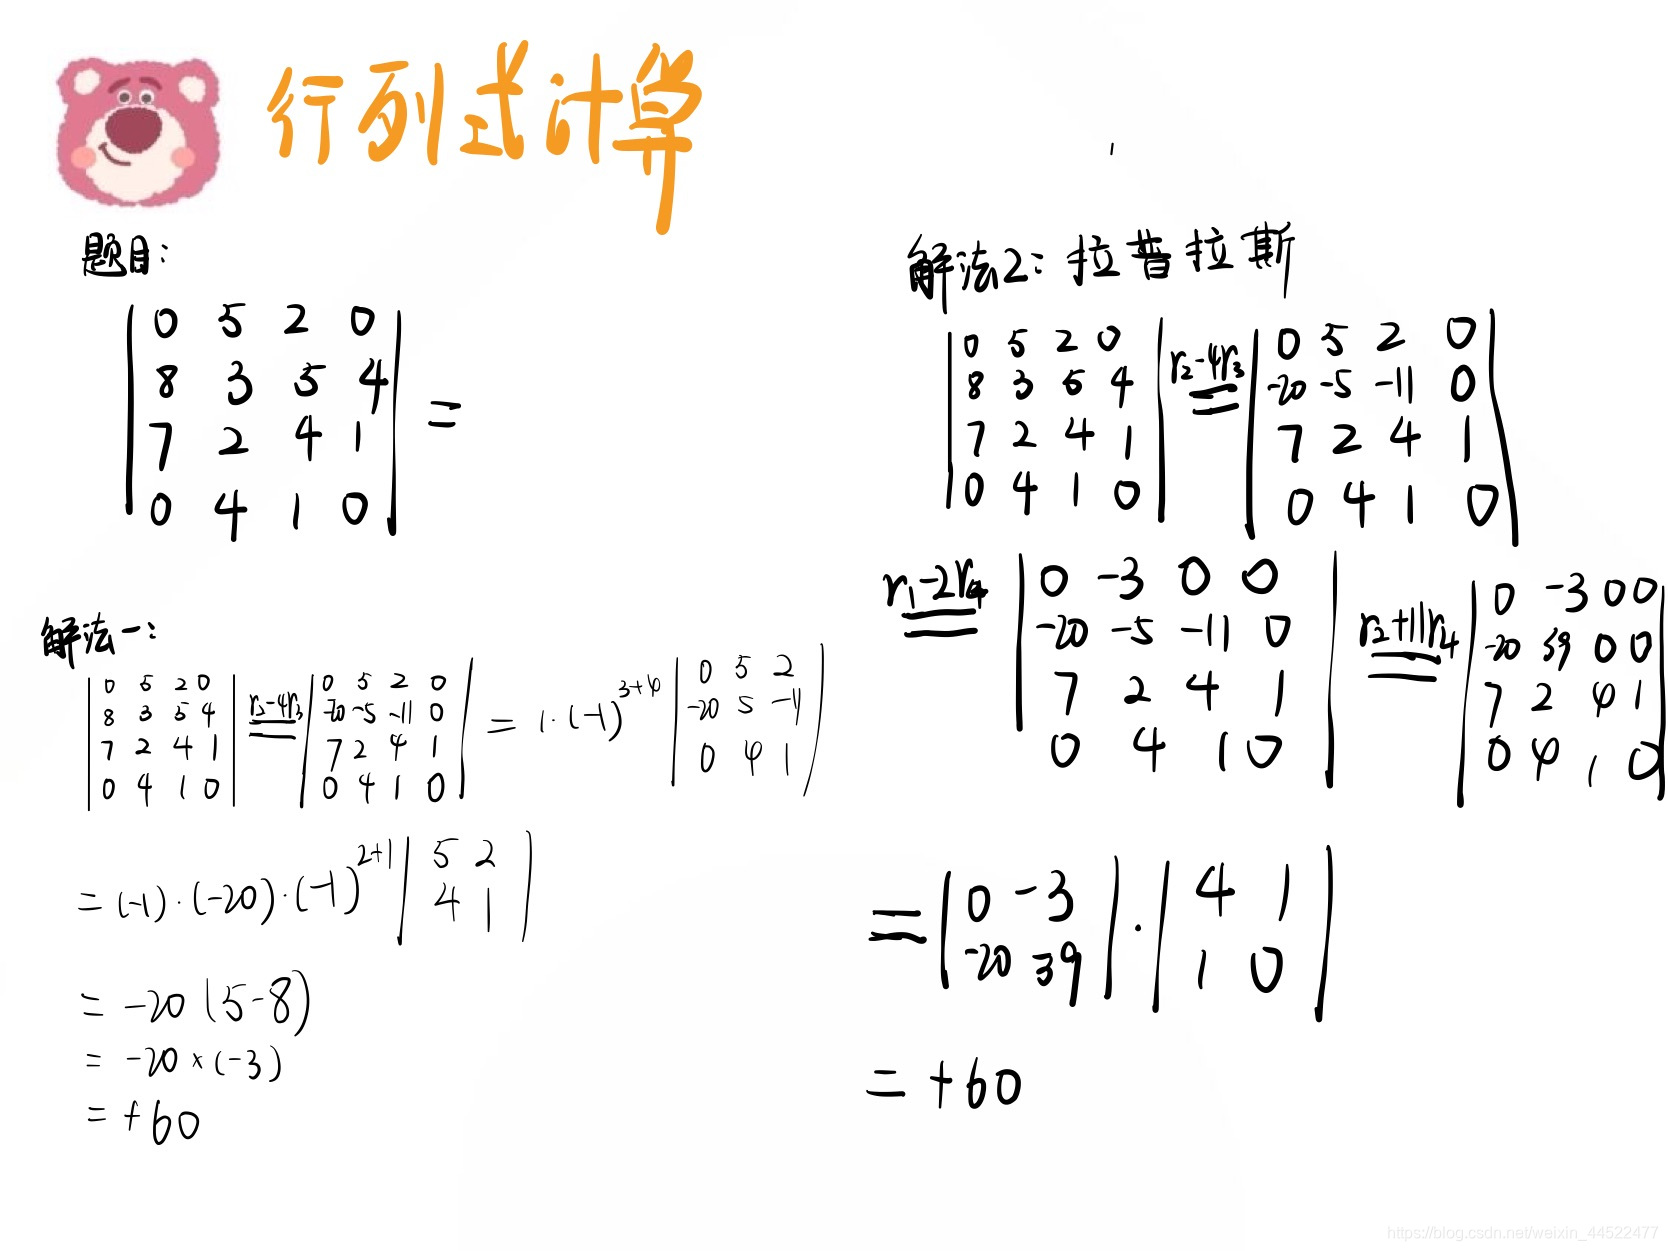 行列式计算
题目:
0 5 2 0
8 3 5 4
7 2 4 1
0 4 1 0
=
解法一:
0 5 2 0
8 3 5 4
7 2 4 1
0 4 1 0
r₂-4r₃
0 5 2 0
-20 -5 -11 0
7 2 4 1
0 4 1 0
= 1·(-1)³⁺⁴
0 5 2
-20 5 -11
0 4 1
= (-1)·(-20)·(-1)²⁺¹
5 2
4 1
= -20 (5-8)
= -20 × (-3)
= +60
解法2: 拉普拉斯
0 5 2 0
8 3 5 4
7 2 4 1
0 4 1 0
r₂-4r₃
0 5 2 0
-20 -5 -11 0
7 2 4 1
0 4 1 0
r₁-2r₄
0 -3 0 0
-20 -5 -11 0
7 2 4 1
0 4 1 0
r₂+11r₄
0 -3 0 0
-20 39 0 0
7 2 4 1
0 4 1 0
=
0 -3
-20 39
·
4 1
1 0
= +60
https://blog.csdn.net/weixin_44522477